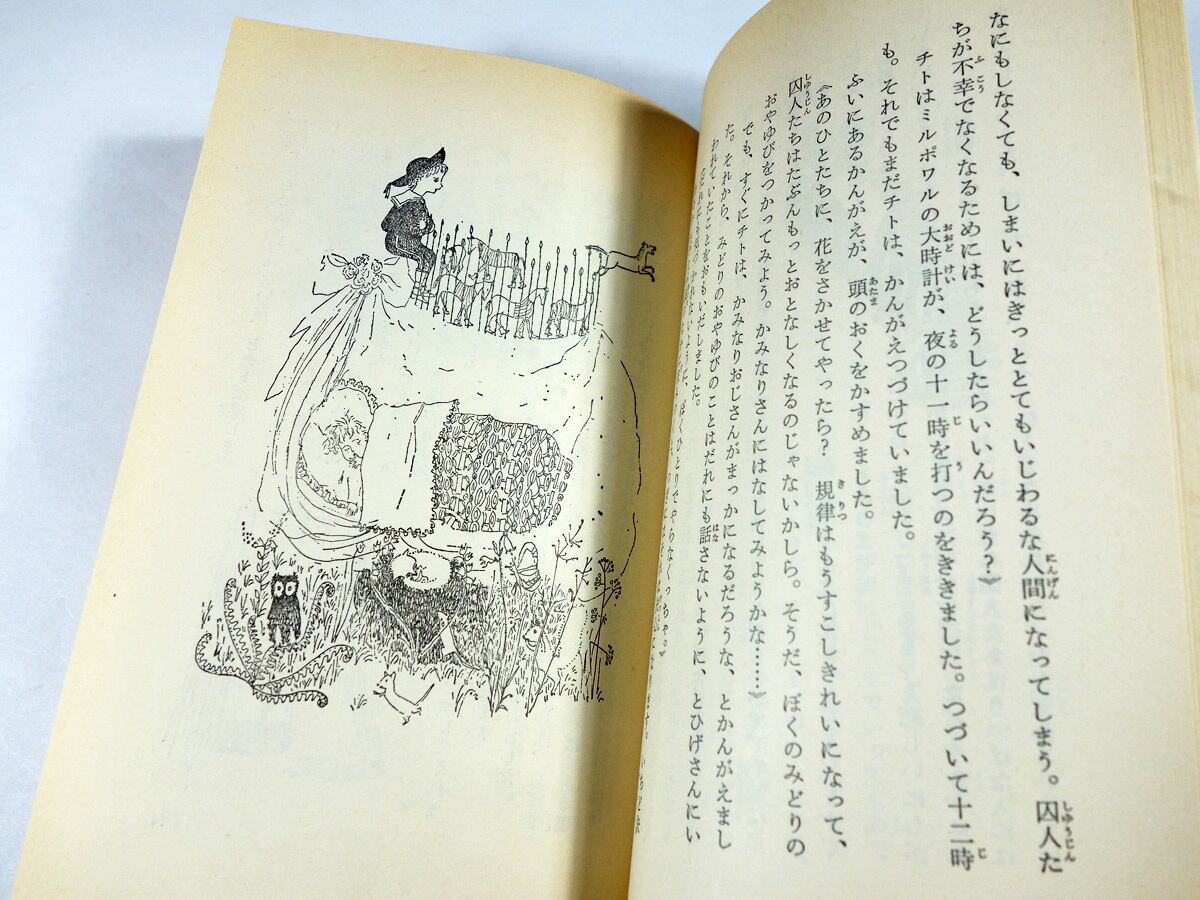 なにもしなくても、しまいにはきっととてもいじわるな人間になってしまう。囚人た
ちが不幸でなくなるためには、どうしたらいいんだろう？》
チトはミルポワルの大時計が、夜の十一時を打つのをききました。つづいて十二時
も。それでもまだチトは、かんがえつづけていました。
ふいにあるかんがえが、頭のおくをかすめました。
《あのひとたちに、花をさかせてやったら？　規律はもうすこしきれいになって、
囚人たちはたぶんもっとおとなしくなるのじゃないかしら。そうだ、ぼくのみどりの
おやゆびをつかってみよう。かみなりさんにはなしてみようかな……》
でも、すぐにチトは、かみなりおじさんがまっかになるだろうな、とかんがえまし
た。それから、みどりのおやゆびのことはだれにも話さないように、とひげさんにい
われていたことをおもいだしました。
ぼくひとりでやらなくっちゃ。》